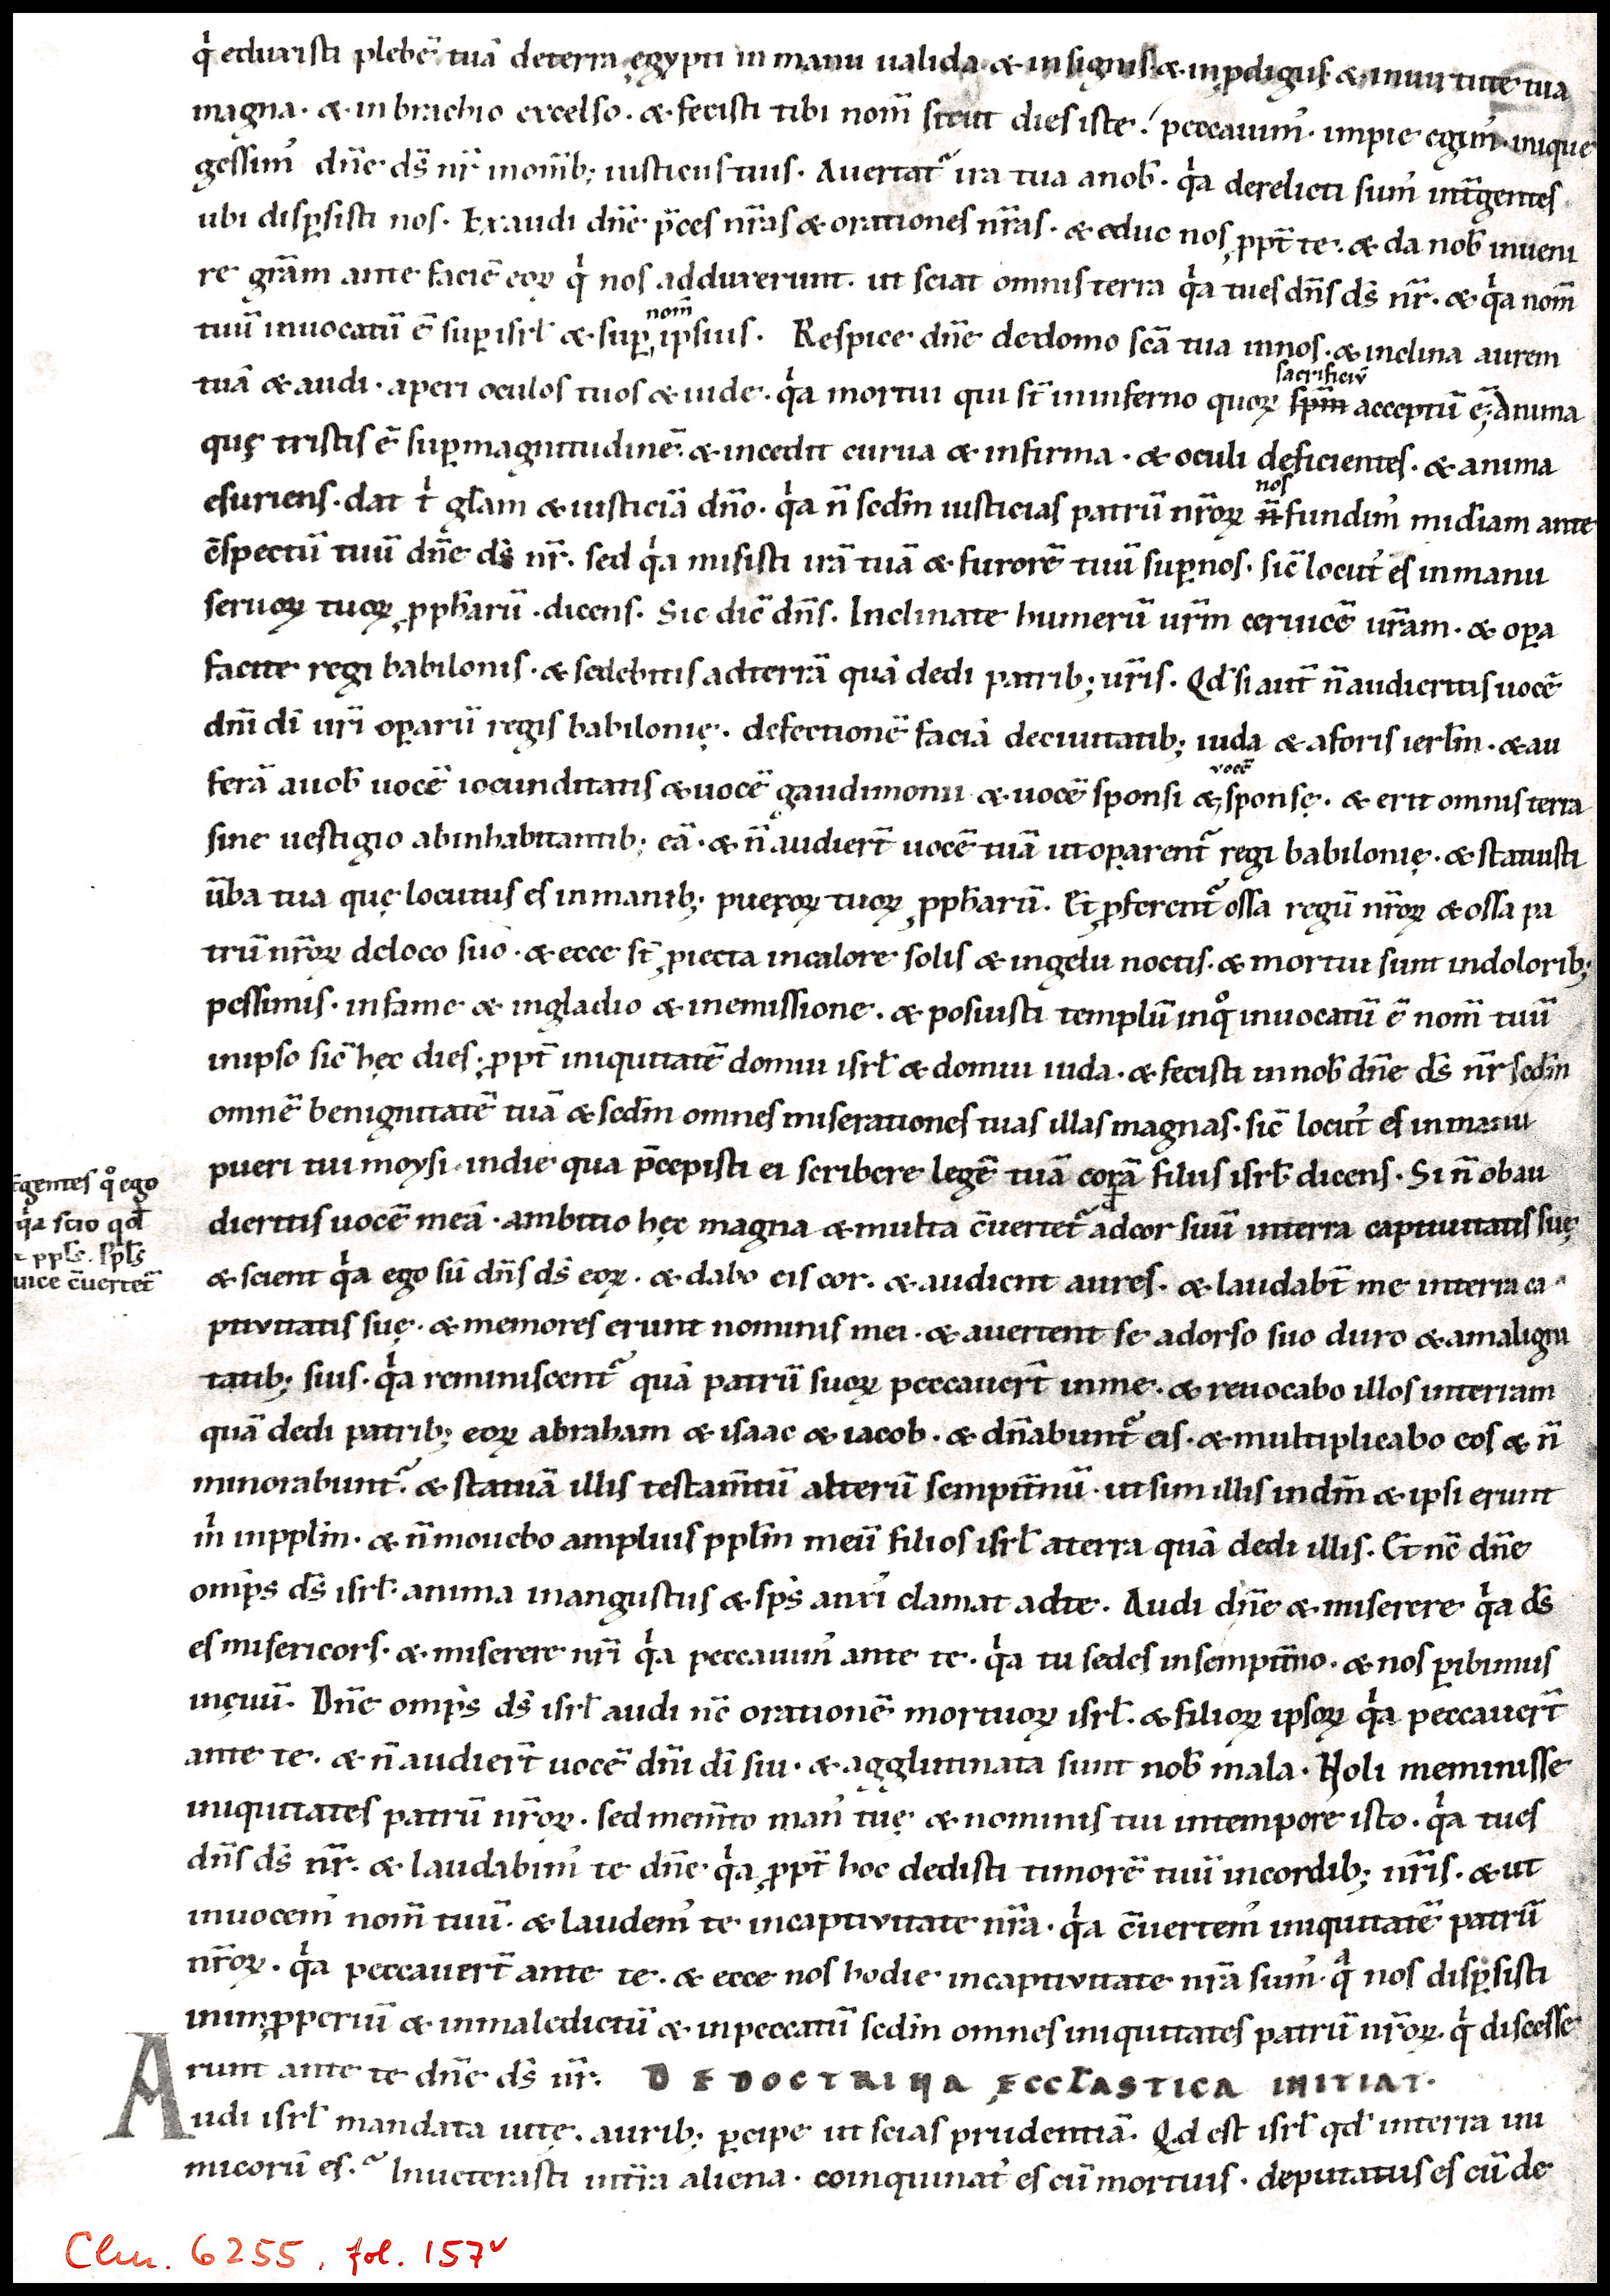 qi eduxisti plebē tuā deterra ęgypti in manu ualida & insignis & inꝓdigiis & inuirtute tua
magna · & inbrachio excelso · & fecisti tibi nom̄ sicut dies iste · peccauim᾽ · impie egim᾽ · inique
gessim᾽ dn̄e ds̄ nr̄ inom̄ib; iusticiis tuis · Auertat᷑ ira tua anob̄ · qͥa derelicti sum᾽ int̄gentes
ubi disꝑsisti nos · Exaudi dn̄e p̄ces nr̄as & orationes nr̄as · & educ nos ꝓpt̄ te · & da nob̄ inueni
re gr̄am ante faciē eoꝝ qͥ nos adduxerunt · ut sciat omnis terra qͥa tues dn̄s ds̄ nr̄ · & qͥa nom̄
tuū inuocatū ē suꝑ isrl̄ & suꝑ ipsius · Respice dn̄e dedomo sc̄a tua innos · & inclina aurem
nom̄
tuā & audi · aperi oculos tuos & uide · qͥa mortui qui st̄ ininferno quoꝝ sp̄m acceptū ē; Anima
sacrificiū
quę tristis ē suꝑmagnitudinē · & incedit curua & infirma · & oculi deficientes · & anima
esuriens · dat tͥ gl̄am & iusticiā dn̄o · qͥa n̄ sed̄m iusticias patrū nr̄oꝝ n̄ fundim᾽ mid̄iam ante
nos
c̄spectū tuū dn̄e ds̄ nr̄ · sed qͥa misisti irā tuā & furorē tuū suꝑnos · sic̄ locut᾽ es inmanu
seruoꝝ tuoꝝ ꝓph̄arū · dicens · Sic dic̄ dn̄s · Inclinate humerū ur̄m ceruicē ur̄am · & oꝑa
facite regi babilonis · & sedebitis adterrā quā dedi patrib; ur̄is · Qd̄ si aut̄ n̄ audieritis uocē
dn̄i dī ur̄i oꝑariū regis babilonię · defectionē faciā deciuitatib; iuda & aforis ierl̄m · & au
ferā auob̄ uocē iocunditatis & uocē gaudimonii & uocē sponsi & sponsę · & erit omnis terra
uocē
sine uestigio abinhabitantib; eā · & n̄ audiert̄ uocē tuā utoꝑarent᷑ regi babilonię · & statuisti
ūba tua quę locutus es inmanib; pueroꝝ tuoꝝ ꝓph̄arū · Et ꝓferent᷑ ossa regū nr̄oꝝ & ossa pa
trū nr̄oꝝ deloco suo · & ecce st̄ ꝓiecta incalore solis & ingelu noctis · & mortui sunt indolorib;
pessimis · infame & ingladio & inemissione · & posuisti templū inqͦ inuocatū ē nom̄ tuū
inipso sic̄ hęc dies · ꝓpt̄ iniquitatē domui isrl̄ & domui iuda · & fecisti innob̄ dn̄e ds̄ nr̄ sed̄m
omnē benignitatē tuā & sed̄m omnes miserationes tuas illas magnas · sic̄ locut᾽ es inmanu
pueri tui moysi · indie qua p̄cepisti ei scribere legē tuā corā filiis isrl̄ dicens · Si n̄ obau
dieritis uocē meā · ambitio hęc magna & multa c̄uertet᷑ adcor suū interra captiuitatis suę
& scient qͥa ego sū dn̄s ds̄ eoꝝ · & dabo eis cor · & audient aures · & laudabt̄ me interra ca
ptiuitatis suę · & memores erunt nominis mei · & auertent se adorso suo duro & amaligni
tatib; suis · qͥa reminiscent᷑ quā patrū suoꝝ peccauert̄ inme · & reuocabo illos interram
quā dedi patrib; eoꝝ abraham & isaac & iacob · & dn̄abunt᷑ eis · & multiplicabo eos & n̄
minorabunt᷑ · & statuā illis testam̄tū alterū sempit̄nū · ut sim illis indm̄ & ipsi erunt
mͥ inppl̄m · & n̄ mouebo amplius ppl̄m meū filios isrl̄ aterra quā dedi illis · Et nc̄ dn̄e
omīps ds̄ isrl̄ · anima inangustiis & sps̄ anxi᾽ clamat adte · Audi dn̄e & miserere qͥa ds̄
es misericors · & miserere nr̄i qͥa peccauim᾽ ante te · qͥa tu sedes insempit̄no · & nos ꝑibimus
inęuū · Dn̄e omīps ds̄ isrl̄ audi nc̄ orationē mortuoꝝ isrl̄ · & filioꝝ ipsoꝝ qͥa peccauert̄
ante te · & n̄ audiert̄ uocē dn̄i dī sui · & agglutinata sunt nob̄ mala · Noli meminisse
iniquitates patrū nr̄oꝝ · sed mem̄to man᾽ tuę & nominis tui intempore isto · qͥa tues
dn̄s ds̄ nr̄ · & laudabim᾽ te dn̄e qͥa ꝓpt̄ hoc dedisti timorē tuū incordib; nr̄is · & ut
inuocem᾽ nom̄ tuū · & laudem᾽ te incaptiuitate nr̄a · qͥa c̄uertem᾽ iniquitatē patrū
nr̄oꝝ · qͥa peccauert̄ ante te · & ecce nos hodie incaptiuitate nr̄a sum᾽ · qͣ nos disꝑsisti
inimꝓperiū & inmaledictū & inpeccatū sed̄m omnes iniquitates patrū nr̄oꝝ · qͥ discesse
runt ante te dn̄e ds̄ nr̄ · DE DOCTRINA ĘCCL̄ASTICA INITIAT ·
Audi isrl̄ mandata uitę · aurib; ꝑcipe ut scias prudentiā · Qd est isrl̄ qd̄ interra ini
micorū es · Inueterasti int̄ra aliena · coinquinat᾽ es cū mortuis · deputatus es cū de
t̄gentes qͦ ego
qͥa scio qd̄
ppl̄s · ppl̄s
uice c̄uertet᷑
Clm. 6255, fol. 157ᵛ